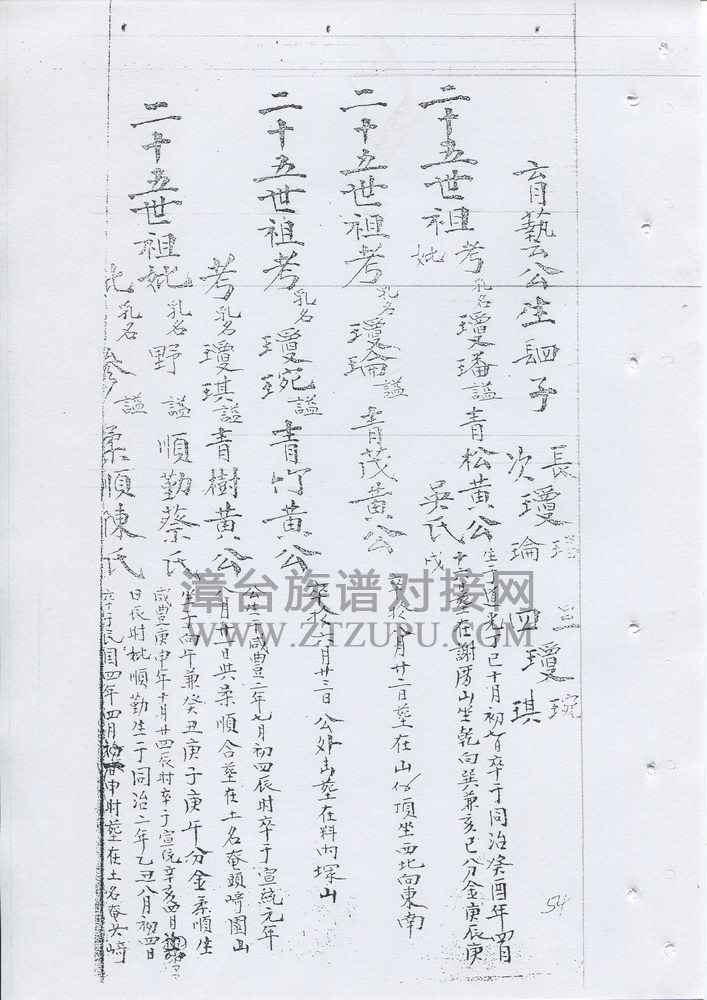 育藝公生四子 長瓊璠 次瓊瑜 三瓊琬 四瓊琪
二十五世祖考乳名瓊璠謚青松黃公生于道光丁巳十月初育卒于同治癸酉年四月
妣吳氏戊
葬在謝厝山坐乾向巽兼亥巳分金庚辰庚
二十五世祖考乳名瓊瑜謚青茂黃公卒於 月廿二日葬在山仔頂坐西北向東南
二十五世祖考乳名瓊琬謚青竹黃公卒於六月廿三日公外出葬在料內深山
考乳名瓊琪謚青樹黃公公生于咸豐二年七月初四辰時卒于宣統元年
八月廿一日與柔順合葬在土名奄頭崎園山
二十五世祖妣乳名野謚順勤蔡氏坐子向午兼癸丑庚子庚午分金柔順生
咸豐庚申年十月廿四辰時卒于宣統辛亥
妣乳名 謚柔順陳氏
日辰時妣順勤生于同治二年乙丑八月初四日
卒于民國四年四月 申時葬在土名奄頭崎
54
漳台族谱对接网
WWW.ZTZUPU.COM